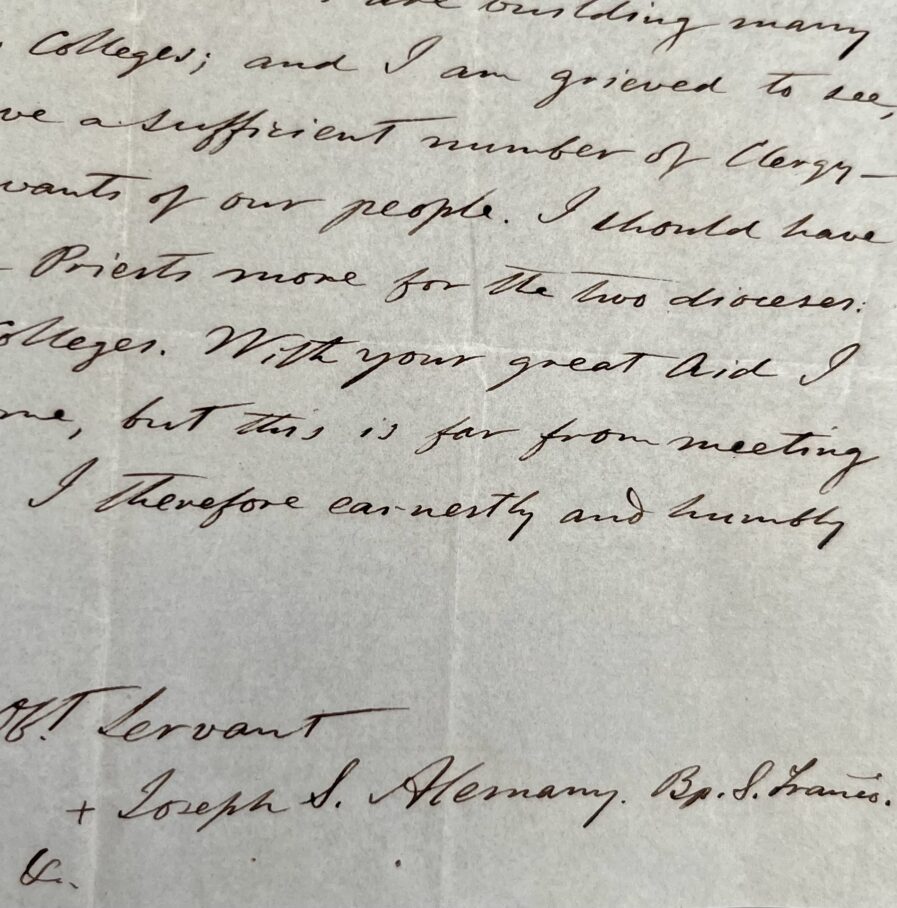 are building many
Colleges; and I am grieved to see,
ve a sufficient number of Clergy—
wants of our people. I should have
– Priests more for the two dioceses:
Colleges. With your great Aid I
me, but this is far from meeting
I therefore earnestly and humbly
Obt. Servant
+ Joseph S. Alemany. Bp. S. Franco.
&c.